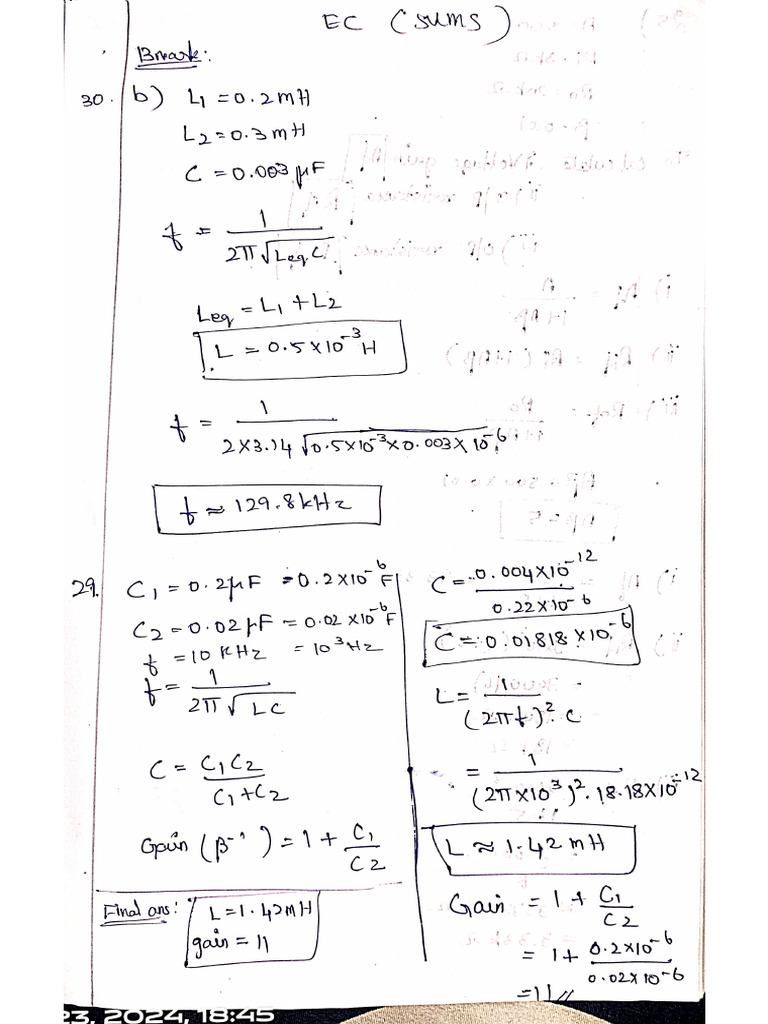 EC (SUMS)
Bmark:
30. b) L1 = 0.2mH
L2 = 0.3mH
C = 0.003 μF
f = 1 / 2π√Leq C
Leq = L1 + L2
L = 0.5×10^-3 H
f = 1 / 2×3.14 √0.5×10^-3×0.003×10^-6
f ≈ 129.8kHz
29. C1 = 0.2μF = 0.2×10^-6 F
C2 = 0.02μF = 0.02×10^-6 F
f = 10 kHz = 10^3 Hz
f = 1 / 2π√LC
C = C1C2 / C1+C2
Gain (β^-1) = 1 + C1 / C2
Final ans: L = 1.42mH
gain = 11
C = 0.004×10^-12 / 0.22×10^-6
C = 0.01818×10^-6
L = 1 / (2πf)^2 C
= 1 / (2π×10^3)^2 . 18.18×10^-12
L ≈ 1.42 mH
Gain = 1 + C1 / C2
= 1 + 0.2×10^-6 / 0.02×10^-6
= 11 //
23, 2024, 18:45